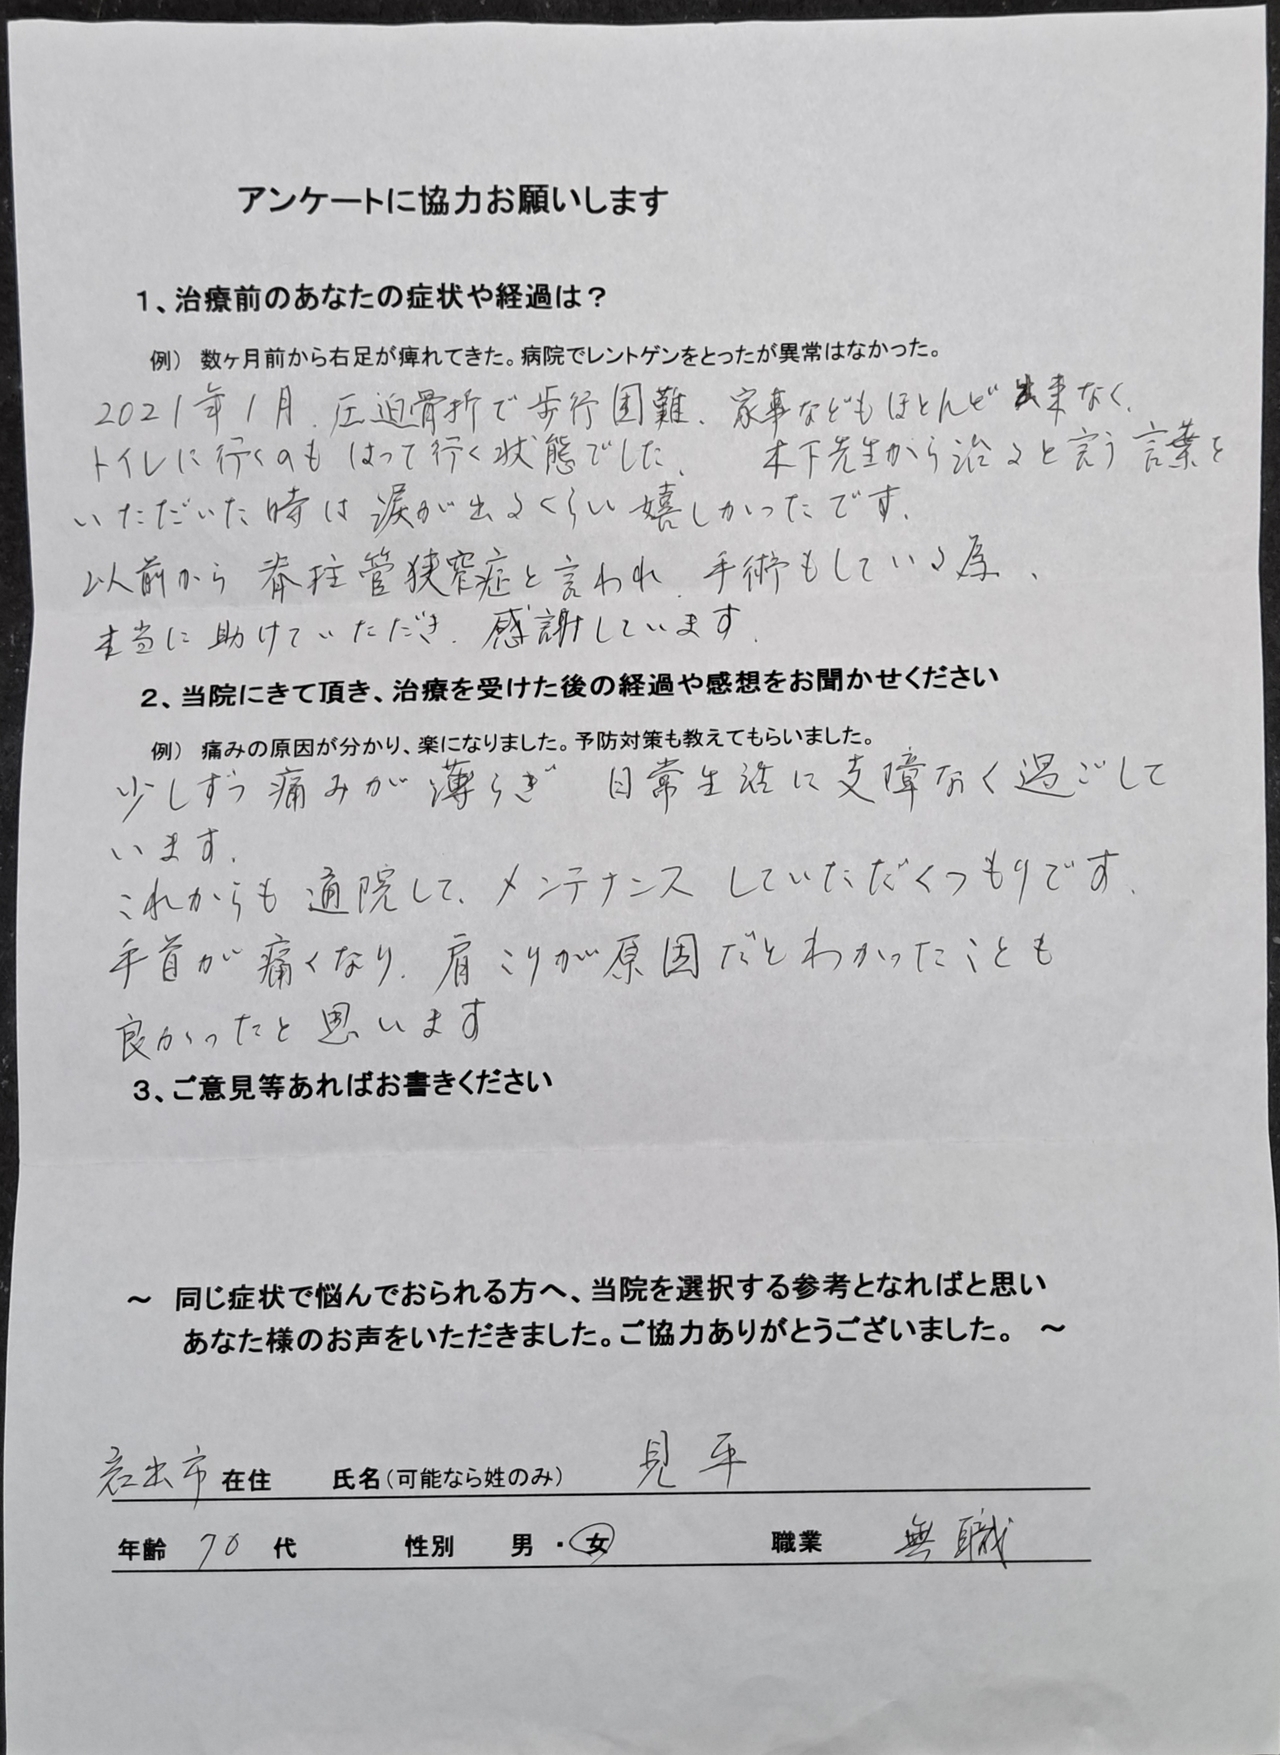 アンケートに協力お願いします
1、治療前のあなたの症状や経過は？
例） 数ヶ月前から右足が痺れてきた。病院でレントゲンをとったが異常はなかった。
2021年1月、圧迫骨折で歩行困難、家事などもほとんど出来なく、
トイレに行くのもはって行く状態でした。 木下先生から治ると言う言葉を
いただいた時は涙が出るくらい嬉しかったです。
以前から脊柱管狭窄症と言われ、手術もしている為、
本当に助けていただき、感謝しています。
2、当院にきて頂き、治療を受けた後の経過や感想をお聞かせください
例） 痛みの原因が分かり、楽になりました。予防対策も教えてもらいました。
少しずつ痛みが薄らぎ 日常生活に支障なく過ごして
います。
これからも通院して、メンテナンスしていただくつもりです。
手首が痛くなり、肩こりが原因だとわかったことも
良かったと思います
3、ご意見等あればお書きください
～ 同じ症状で悩んでおられる方へ、当院を選択する参考となればと思い
あなた様のお声をいただきました。ご協力ありがとうございました。 ～
岩出市 在住 氏名（可能なら姓のみ） 見平
年齢 70 代 性別 男 ・ 女 職業 無職